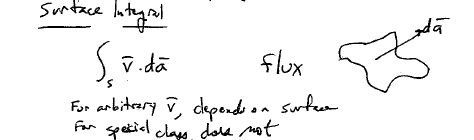 Surface Integral
∫ₛ v̄ · dā flux dā
For arbitrary v̄, depends on surface
For special class, does not